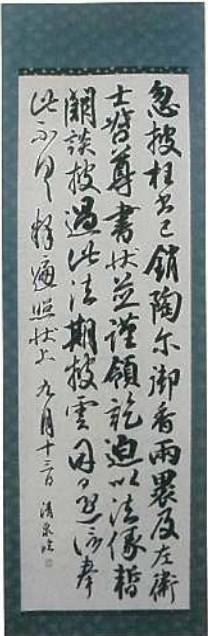 忽披枉書已銷陶尓御香両裹及左衛
士督尊書状並謹領訖迫以法縁暫
闕談披過此法期披雲因還信奉
此不具釋遍照状上 九月十三日 清泉臨